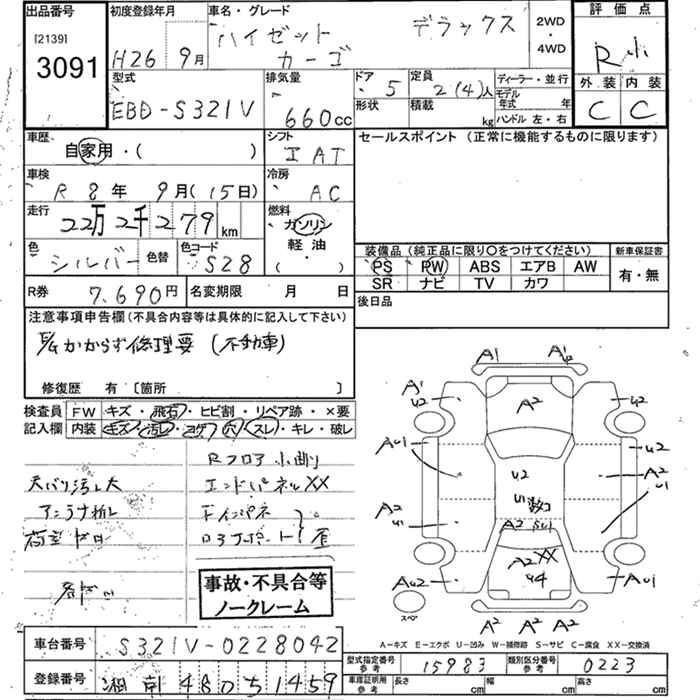 出品番号 初度登録年月 車名・グレード 評価点
[2139] 3091 H26 9月 ハイゼットカーゴ デラックス 2WD・4WD
型式 排気量 ドア 定員 ディーラー・並行 外装 内装
EBD-S321V 660cc 5 2(4)人 モデル年式 年 C C
形状 積載 kg ハンドル 左・右
車歴 シフト セールスポイント (正常に機能するものに限ります)
自家用・( ) IAT
車検 冷房
R 8年 9月(15日) AC
走行 燃料
22万2千279km ガソリン
軽油
( )
色 色替 色コード 装備品(純正品に限り○をつけてください) 新車保証書
シルバー S28 PS PW ABS エアB AW 有・無
SR ナビ TV カワ
R券 7,690円 名変期限 月 日 後日品
注意事項申告欄(不具合内容等は具体的に記入して下さい)
E/gかからず修理要 (不動車)
修復歴 有 〔箇所 〕
検査員 FW キズ・飛石・ヒビ割・リペア跡・×要
記入欄 内装 キズ・汚レ・コゲ・穴・スレ・キレ・破レ
Rフロア
天バリ汚レ大 エンドパネルXX
アンテナ折レ Fインパネ
事故・不具合等
ノークレーム
A' A'
A' U2 A2 U2
AU1 U2 U2
A2 U1 U1 A2 U1
A2 SU1
AU2 A2 XX U4 AU1
スペア
A2 A2 A2
A-キズ E-エクボ U-凹み W-補修跡 S-サビ C-腐食 XX-交換済
車台番号 S321V-0228042
型式指定番号 参考 15983 類別区分番号 参考 0223
登録番号 湘南 480 ち 1459
車庫証明用 参考 長さ cm 幅 cm 高さ cm